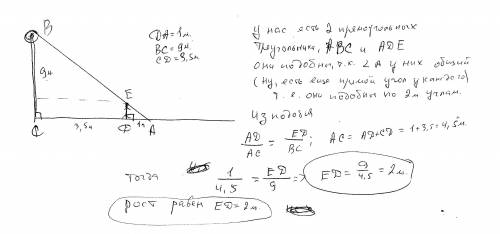 B
DA = 1м.
BC = 9м.
CD = 3,5м
9м
E
C
3,5м
D
1м
A
У нас есть 2 прямоугольных
треугольника, ABC и ADE
Они подобны, т.к. ∠A у них общий
(ну, есть еще прямой угол у каждого)
т.е. они подобны по 2м углам.
Из подобия
AD/AC = ED/BC; AC = AD+CD = 1+3,5 = 4,5м.
тогда 1/4,5 = ED/9 => ED = 9/4,5 = 2м.
рост равен ED = 2м.